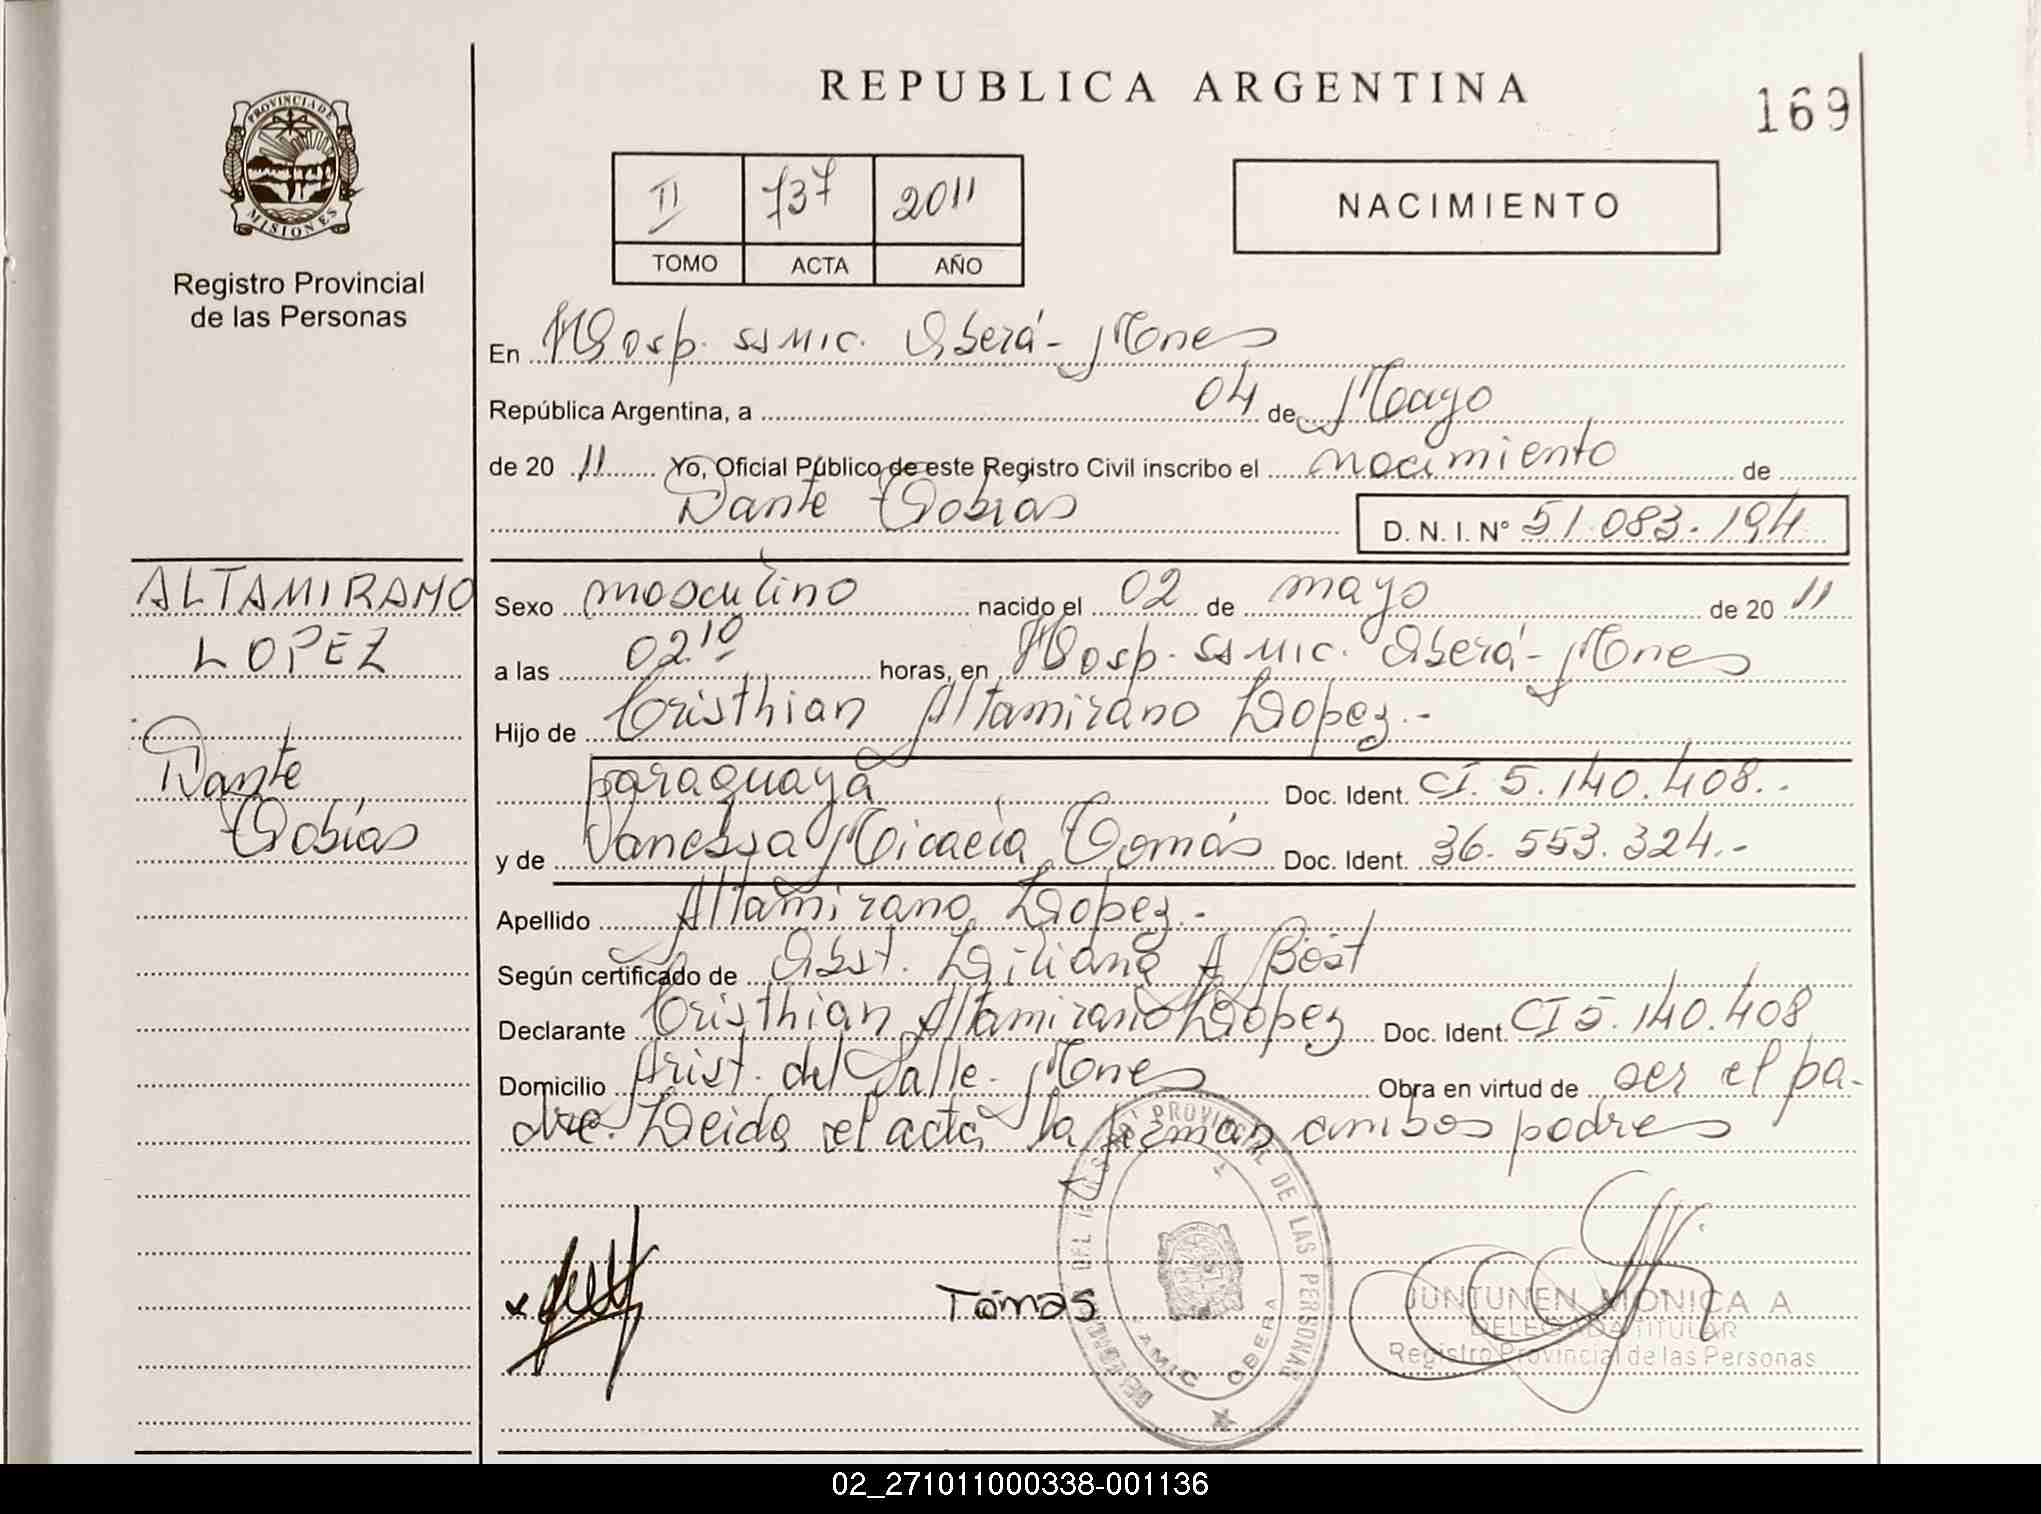 REPUBLICA ARGENTINA
169
PROVINCIA DE
MISIONES
Registro Provincial
de las Personas
II 737 2011
TOMO ACTA AÑO
NACIMIENTO
En Hosp. SAMIC. Oberá - Mnes
República Argentina, a 04 de Mayo
de 20 11 Yo, Oficial Público de este Registro Civil inscribo el nacimiento de
Dante Tobías
D. N. I. N° 51.083.194
ALTAMIRANO
LOPEZ
Dante
Tobías
Sexo masculino nacido el 02 de mayo de 20 11
a las 02.10 horas, en Hosp. SAMIC. Oberá - Mnes
Hijo de Cristhian Altamirano Lopez.-
paraguaya Doc. Ident. CI. 5.140.408.-
y de Vanessa Micaela Tomás Doc. Ident. 36.553.324.-
Apellido Altamirano Lopez.-
Según certificado de Obst. Liliana A Böst
Declarante Cristhian Altamirano Lopez Doc. Ident. CI 5.140.408
Domicilio Arist. del Valle - Mnes Obra en virtud de ser el pa-
dre. Leida el acta la firman ambos padres
Tomas
PROVINCIAL DE LAS PERSONAS
SAMIC OBERA
JUNTUNEN MONICA A
DELEGADA TITULAR
Registro Provincial de las Personas
02_271011000338-001136